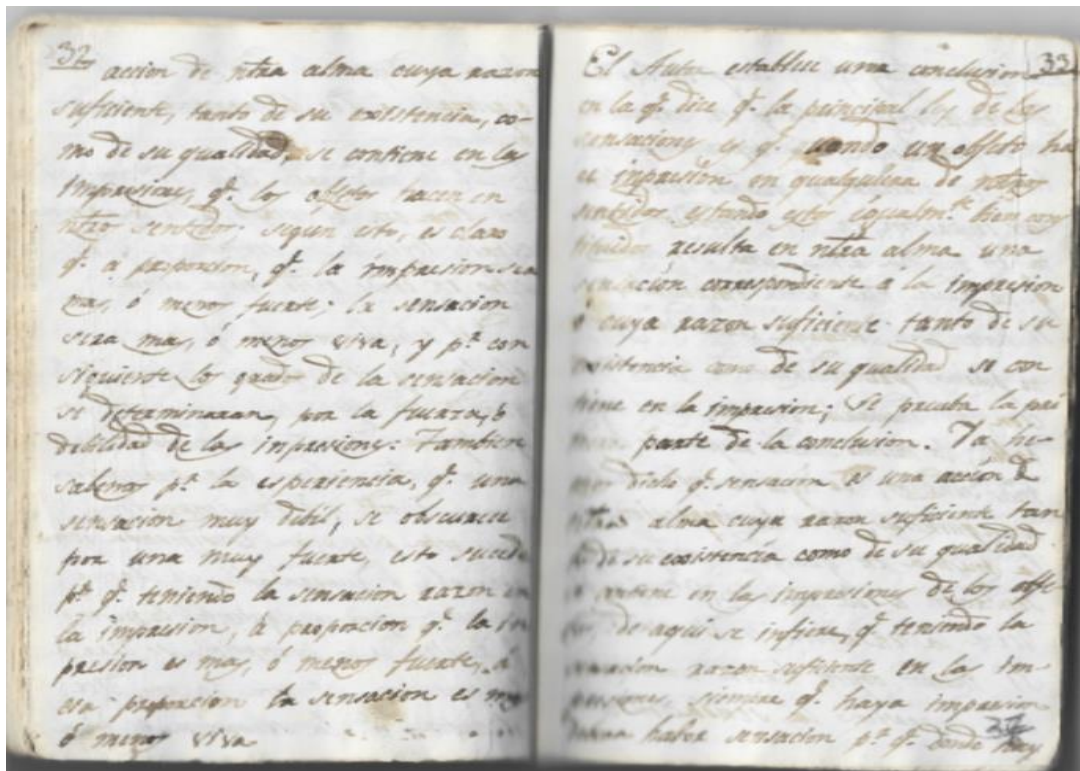 32
accion de ntra alma cuya razon
suficiente, tanto de su existencia, co-
mo de su qualidad, se contiene en las
impresiones, q.e los obgetos hacen en
ntros sentidos; segun esto, es claro
q.e a proporcion, q.e la impresion sea
mas, ó menos fuerte; la sensacion
sera mas, ó menos viva, y p.r con
siguiente los grados de la sensacion
se determinaran, por la fuerza, ó
debilidad de las impresiones: Tambien
sabemos p.r la esperiencia, q.e una
sensacion muy debil, se obscurece
por una muy fuerte, esto sucede
p.r q.e teniendo la sensacion razon en
la impresion, á proporcion q.e la im
presion es mas, ó menos fuerte, á
esa proporcion la sensacion es mas
ó menos viva
33
El Autor establece una conclusion
en la q.e dice q.e la principal ley de las
sensaciones es q.e cuando un obgeto ha
ce impresion en qualquiera de ntros
sentidos estando estos igualm.te bien cons
tituidos resulta en ntra alma una
sensación correspondiente á la impresion
cuya razon suficiente tanto de su
existencia como de su qualidad se con
tiene en la impresion; Se prueba la pri
mera parte de la conclusion. Ya he-
mos dicho q.e sensacion es una acción de
ntra alma cuya razon suficiente tan
to de su existencia como de su qualidad
se contiene en las impresiones de los obge
tos, de aqui se infiere, q.e teniendo la
sensacion razon suficiente en las im-
presiones, siempre q.e haya impresion
debera haber sensacion p.r q.e donde hay